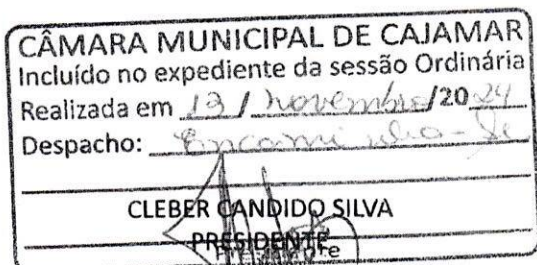 CÂMARA MUNICIPAL DE CAJAMAR
Incluído no expediente da sessão Ordinária
Realizada em 13 / novembro /20 24
Despacho: Encaminha-se
CLEBER CANDIDO SILVA
PRESIDENTE